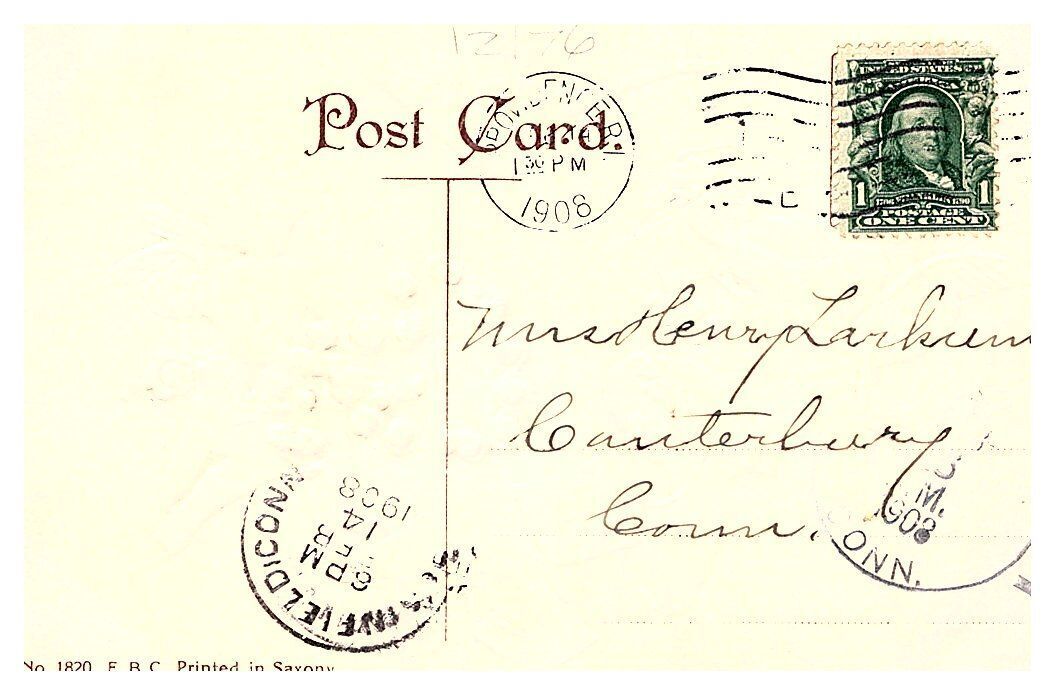 12/76
Post Card.
PROVIDENCE R.I.
1 30 PM
1908
UNITED STATES
FRANKLIN
1 1
POSTAGE
ONE CENT
Mrs Henry Larkum
Canterbury
Conn.
M.
1908
ONN.
INFIELD CONN
6 PM
14
1908
No. 1820 E. B. C. Printed in Saxony